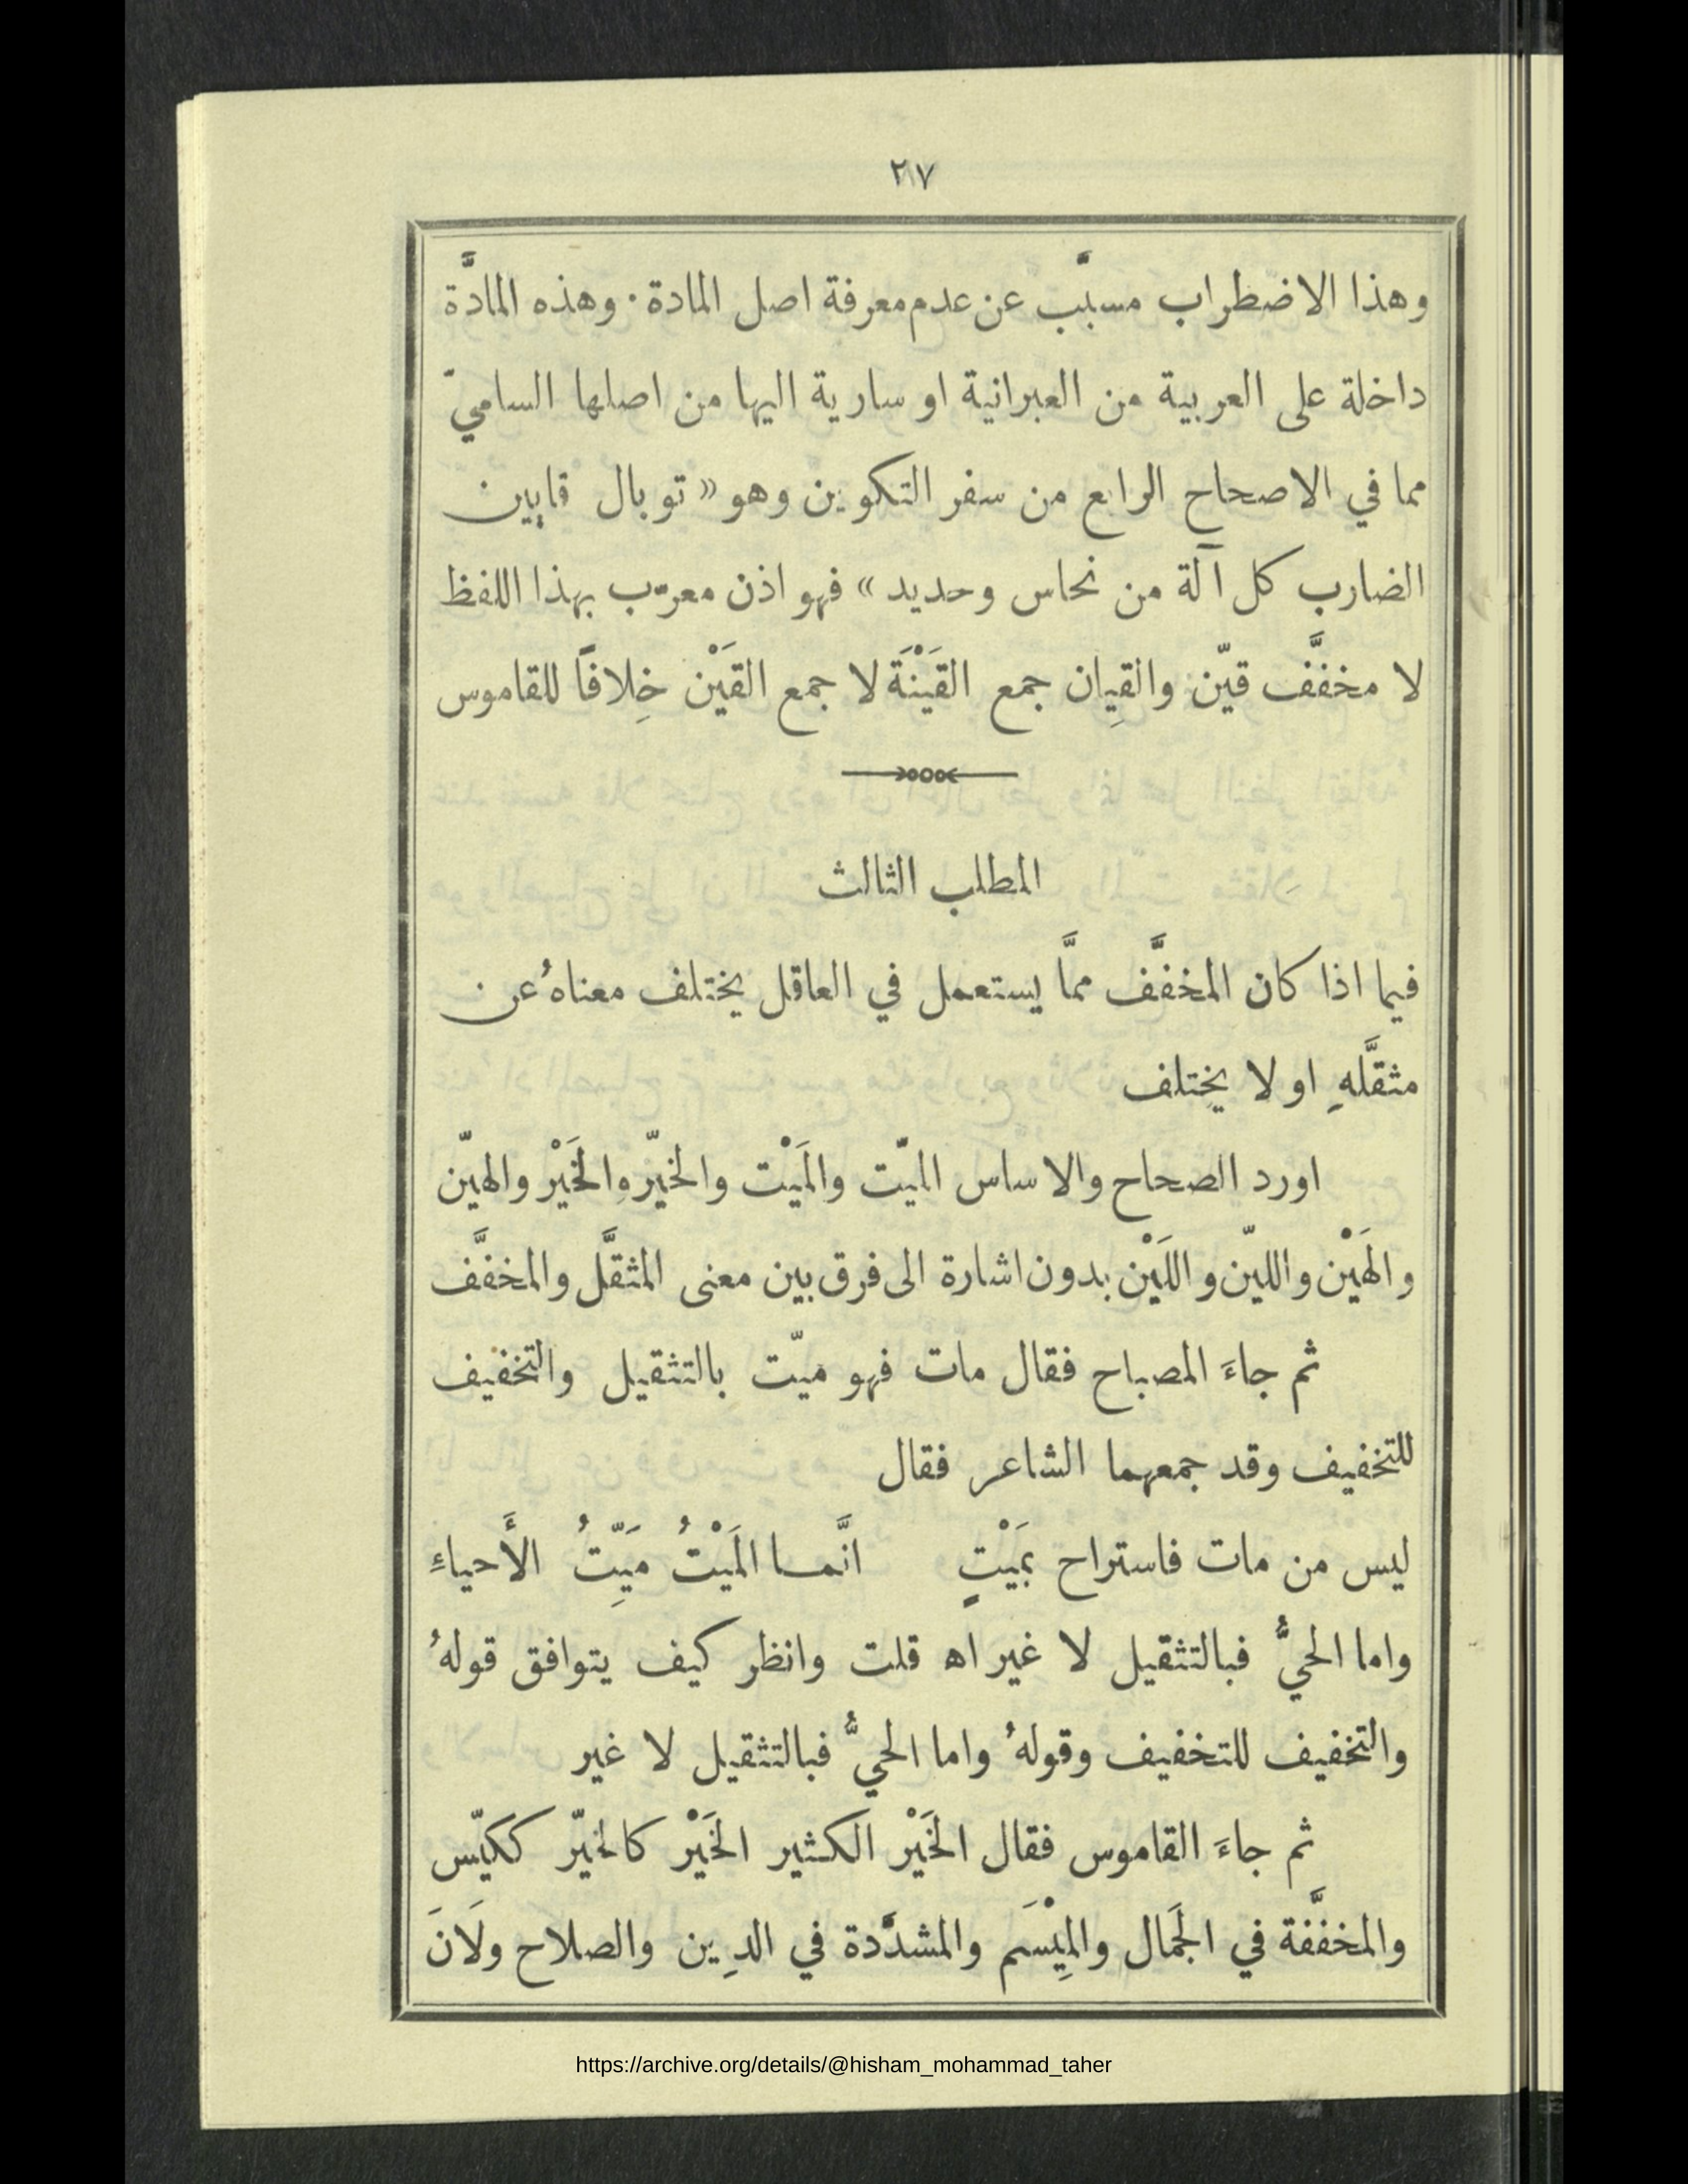 ٢١٧
وهذا الاضطراب مسبَّب عن عدم معرفة اصل المادة · وهذه المادَّة
داخلة على العربية من العبرانية او سارية اليها من اصلها الساميّ
مما في الاصحاح الرابع من سفر التكوين وهو « توبال قايين
الضارب كل آلة من نحاس وحديد » فهو اذن معرّب بهذا اللفظ
لا مخفَّف قيّن والقِيان جمع القَيْنَة لا جمع القَيْن خِلافًا للقاموس
المطلب الثالث
فيما اذا كان المخفَّف ممَّا يستعمل في العاقل يختلف معناهُ عن
مثقَّلهِ او لا يختلف
اورد الصحاح والاساس الميّت والمَيْت والخيّر والخَيْر والهيّن
والهَيْن والليّن واللَيْن بدون اشارة الى فرق بين معنى المثقَّل والمخفَّف
ثم جاءَ المصباح فقال مات فهو ميّت بالتثقيل والتخفيف
للتخفيف وقد جمعهما الشاعر فقال
ليس من مات فاستراح بمَيْتٍ انَّمـا المَيْتُ مَيِّتُ الأَحياءِ
واما الحيُّ فبالتثقيل لا غير اه قلت وانظر كيف يتوافق قولهُ
والتخفيف للتخفيف وقولهُ واما الحيُّ فبالتثقيل لا غير
ثم جاءَ القاموس فقال الخَيْر الكثير الخَيْر كالخيّر ككيّس
والمخفَّفة في الجَمال والمِيْسَم والمشدَّدة في الدِين والصلاح ولَانَ
https://archive.org/details/@hisham_mohammad_taher